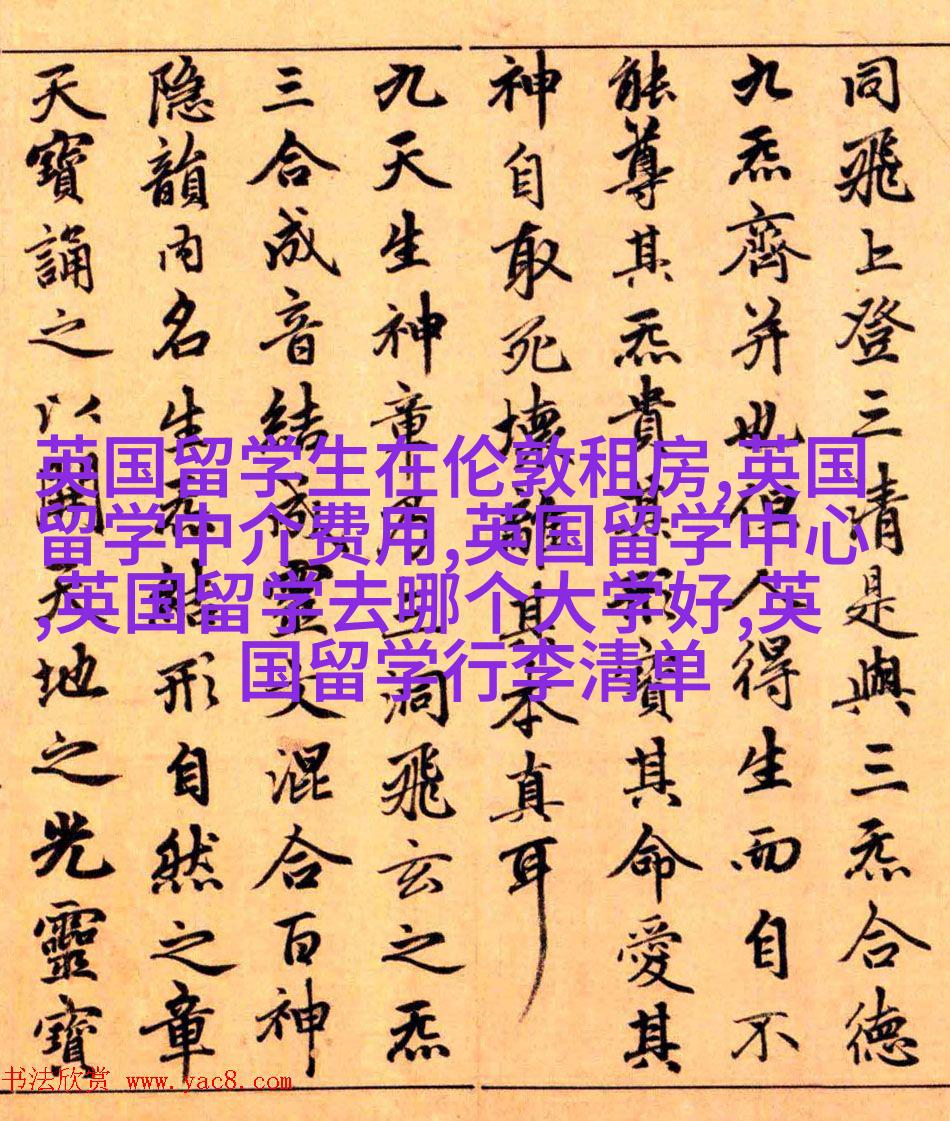 同飛上登三清是與三炁合德
九炁齊并也但人得生而自不
能尊其炁貴其形寶其命愛其
神自取死壞離其本真耳
九天生神章乃三洞飛玄之炁
三合成音結成靈文混合百神
隱韻內名生炁結形自然之章
天寶誦之以開天地之光靈寶
英国留学生在伦敦租房,英国
留学中介费用,英国留学中心
,英国留学去哪个大学好,英
国留学行李清单
书法欣赏 www.yac8.com